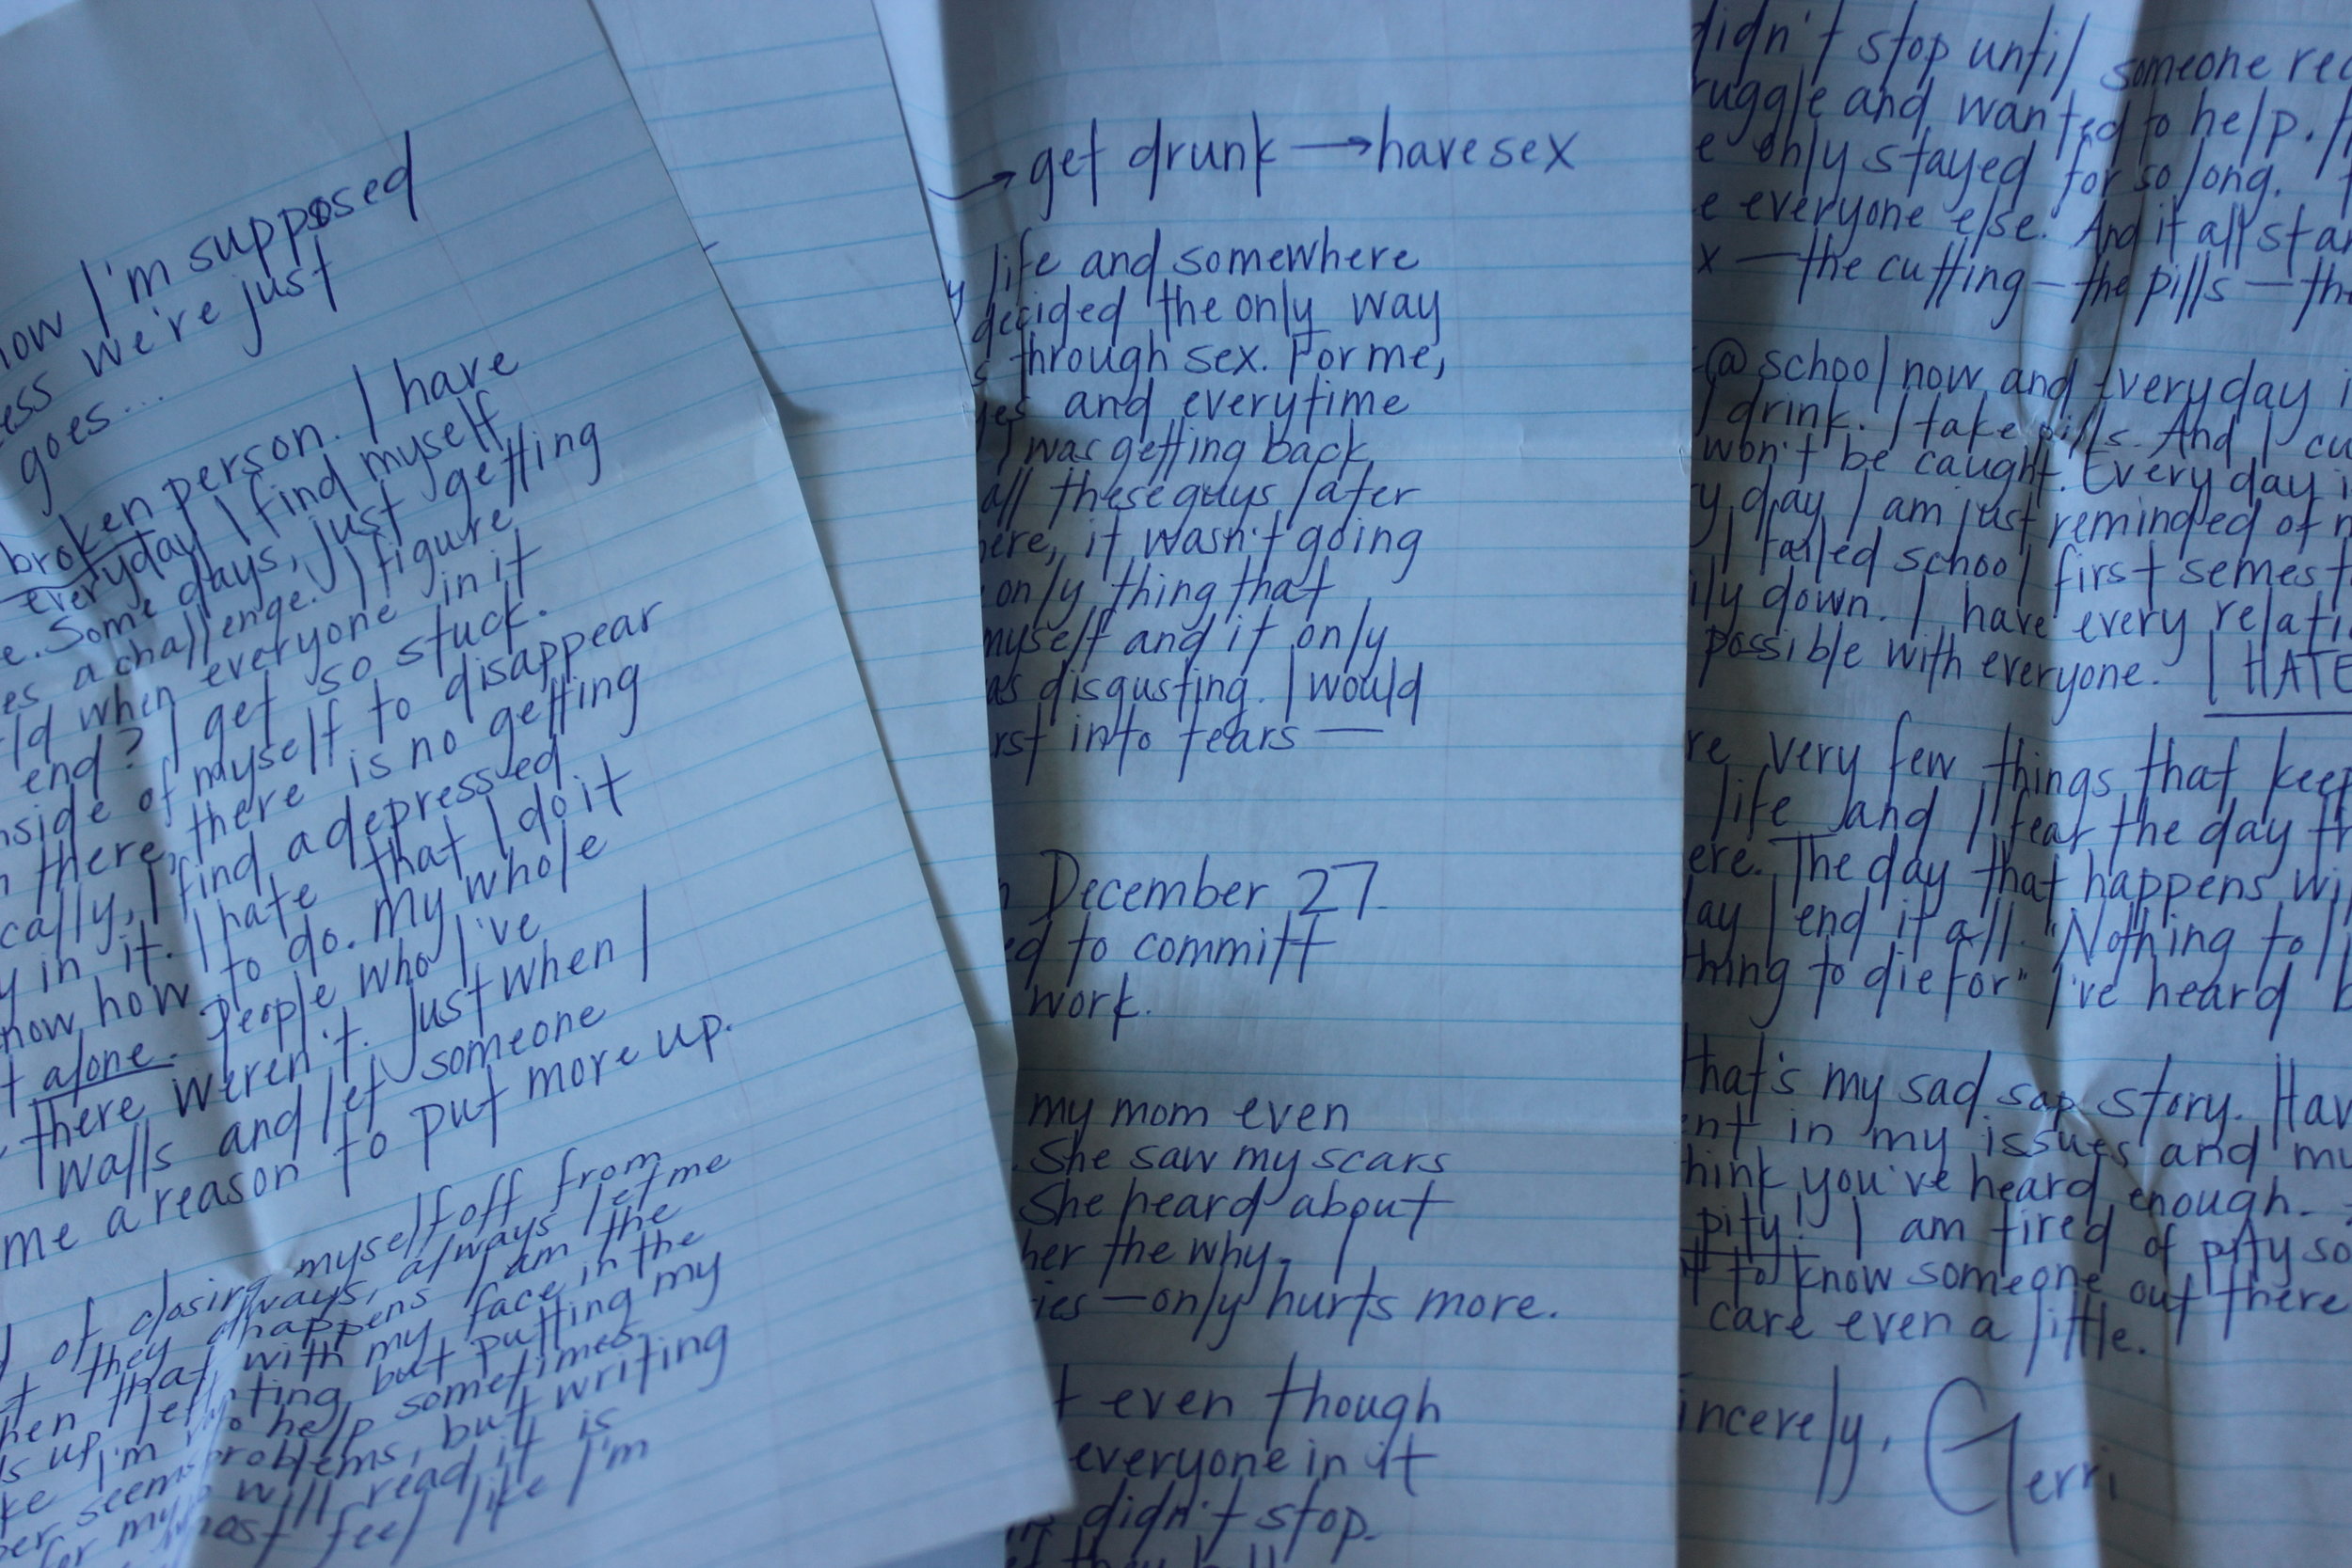 now I'm supposed
ess we're just
goes...
broken person. I have
everyday I find myself
e. Some days, just getting
es a challenge. I figure
ld when everyone in it
end? I get so stuck.
nside of myself to disappear
n there, there is no getting
cally, I find a depressed
y in it. I hate that I do it
now how to do. My whole
t alone. People who I've
there weren't. Just when I
walls and let someone
me a reason to put more up.
d of closing myself off from
t they always, always let me
hen that happens I am the
s up left with my face in the
ke I'm but putting my
er seems to help sometimes
for my problems, but writing
will read it is
most feel like I'm
→ get drunk → have sex
y life and somewhere
decided the only way
s through sex. For me,
yes and everytime
I was getting back
all these guys later
here, it wasn't going
only thing that
myself and it only
as disgusting. I would
rst into tears —
n December 27.
ed to committ
work.
my mom even
. She saw my scars
She heard about
her the why. I
ies — only hurts more.
t even though
everyone in it
didn't stop.
didn't stop until someone rec
ruggle and wanted to help.
e only stayed for so long.
e everyone else. And it all star
x — the cutting — the pills — th
@ school now and Everyday i
I drink. I take pills. And I cu
won't be caught. Every day i
y day I am just reminded of m
I failed school first semest
ily down. I have every relati
possible with everyone. I HATE
re very few things that keep
life and I fear the day th
ere. The day that happens wi
lay I end it all. "Nothing to li
thing to die for" I've heard b
that's my sad sap story. Hav
ent in my issues and my
hink you've heard enough.
pity! I am tired of pity so
t to know someone out there
care even a little.
incerely, Gerri